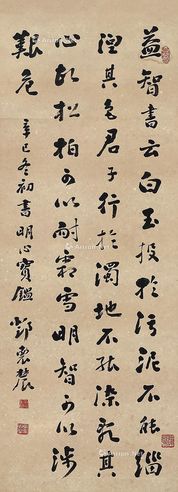 益智書云白玉投於污泥不能緇
涅其色君子行於濁地不能染亂其
心故松柏可以耐霜雪明智可以涉
艱危
辛巳冬初書明心寶鑑 鄧震麓